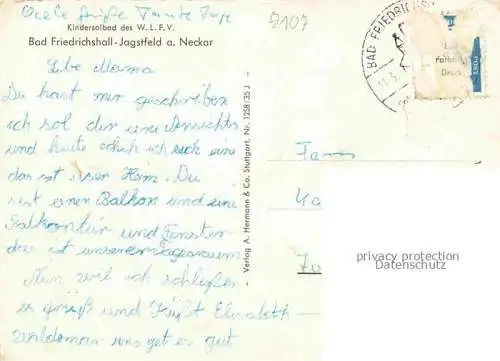 Viele Grüße Tante Inge
Kindersolbad des W.L.F.V.
Bad Friedrichshall-Jagstfeld a. Neckar
Liebe Mama
Du hast mir geschrieben
ich sol dir eine Ansichts
und heute schik ich euch eine
das ist unser Heim. Du
sist einen Balkon und eine
Balkontür und Fenster
das ist unser Tagesraum
Nun will ich schließen
es grüß und Küßt Elisabeth
uns get es gut
Verlag A. Hermann & Co. Stuttgart, Nr. 1258/35 J
7107
BAD FRIEDRICHSH
11.5.
Fam
privacy protection
Datenschutz